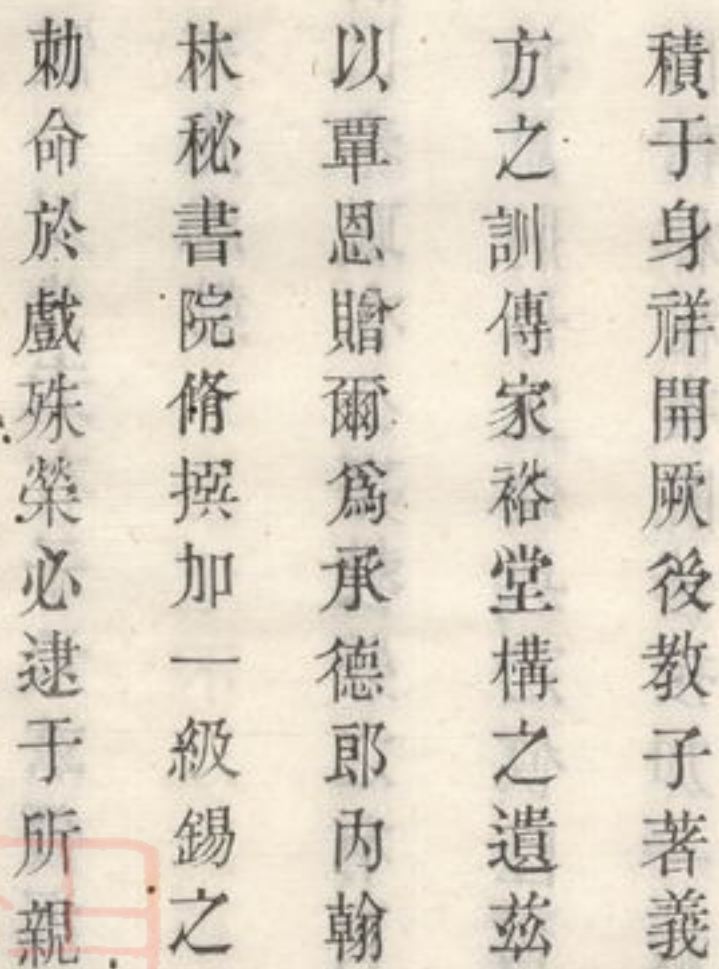 積于身祥開厥後教子著義
方之訓傳家裕堂構之遺茲
以覃恩贈爾爲承德郎内翰
林秘書院脩撰加一級錫之
勅命於戲殊榮必逮于所親